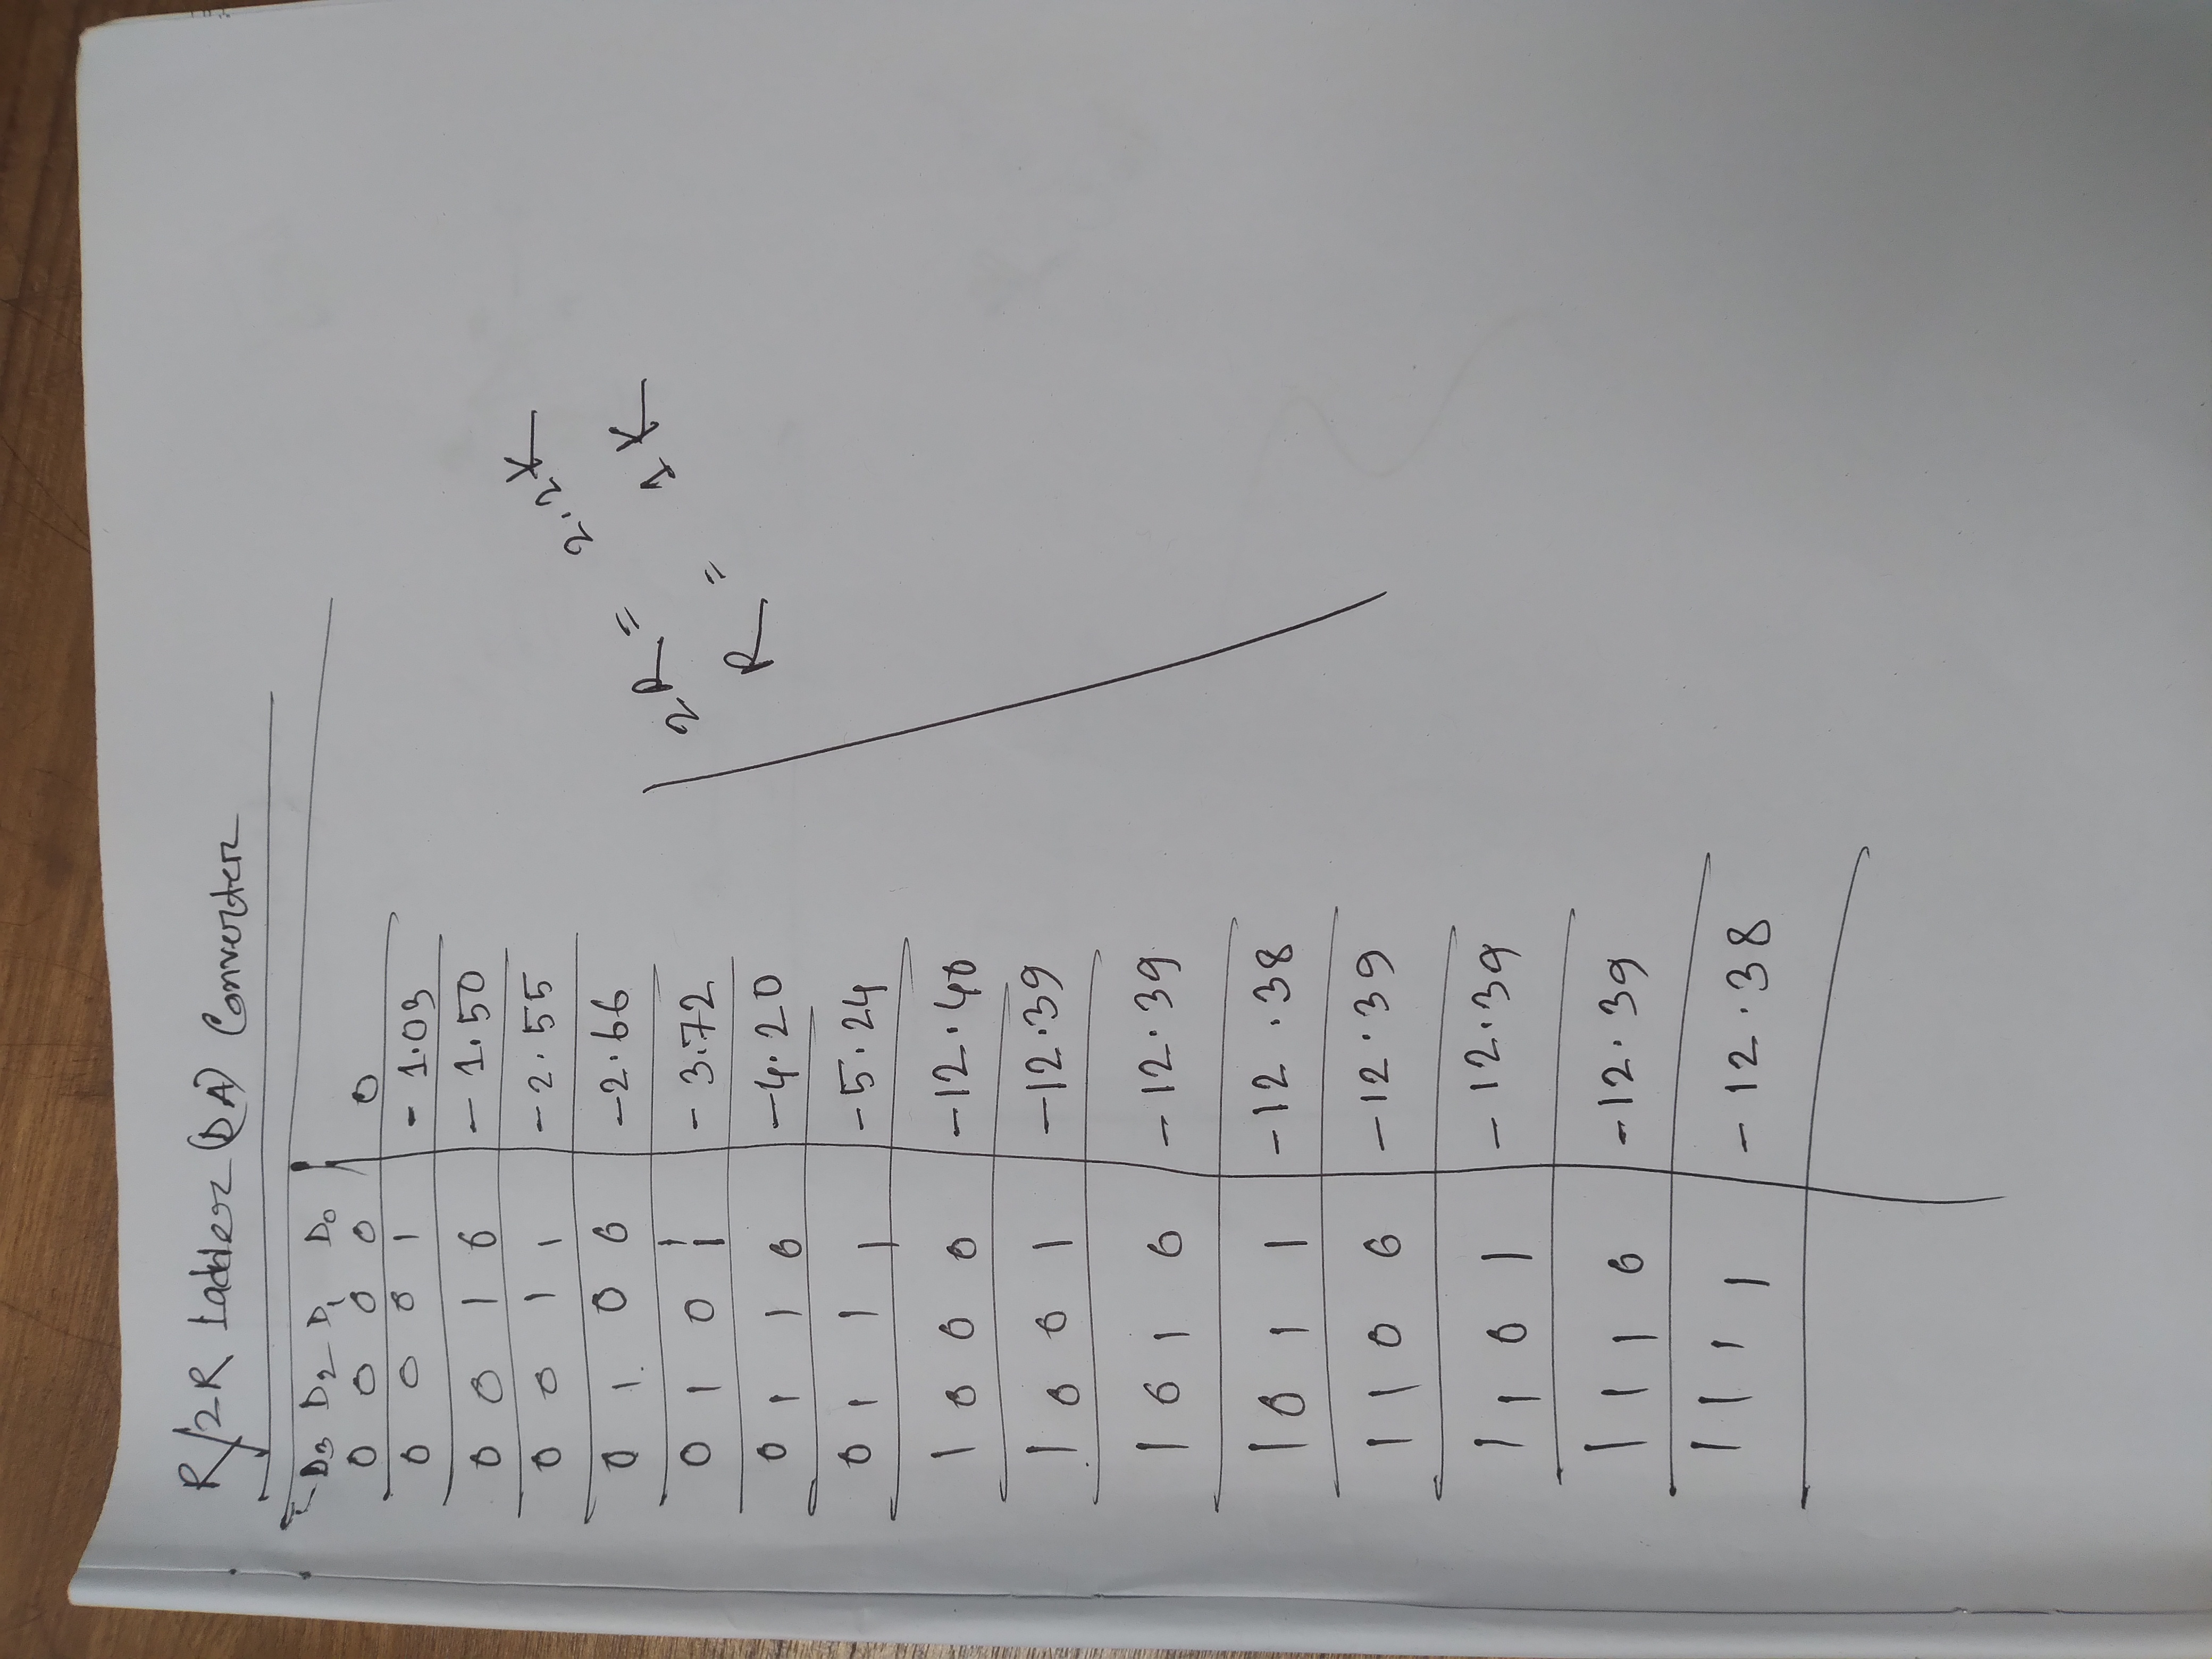 R/2R Ladder (DA) Converter
D3 D2 D1 D0
0 0 0 0 0
0 0 0 1 - 1.03
0 0 1 0 - 1.50
0 0 1 1 - 2.55
0 1 0 0 - 2.66
0 1 0 1 - 3.72
0 1 1 0 - 4.20
0 1 1 1 - 5.24
1 0 0 0 - 12.40
1 0 0 1 - 12.39
1 0 1 0 - 12.39
1 0 1 1 - 12.38
1 1 0 0 - 12.39
1 1 0 1 - 12.39
1 1 1 0 - 12.39
1 1 1 1 - 12.38
2R = 2.2K
R = 1K